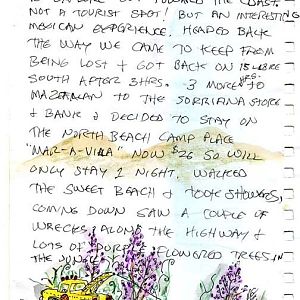 NOT A TOURIST SPOT! BUT AN INTERESTING
MEXICAN EXPERIENCE. HEADED BACK
THE WAY WE CAME TO KEEP FROM
BEING LOST & GOT BACK ON 15 LIBRE
SOUTH AFTER 3 HRS. 3 MORE HRS. TO
MAZATLAN TO THE SORRIANA STORE
& BANK & DECIDED TO STAY ON
THE NORTH BEACH CAMP PLACE
"MAR-A-VILLA" NOW $26 SO WILL
ONLY STAY 1 NIGHT. WALKED
THE SWEET BEACH & TOOK SHOWERS,
COMING DOWN SAW A COUPLE OF
WRECKS ALONG THE HIGHWAY &
LOTS OF PURPLE FLOWERED TREES IN
THE JUNGLE